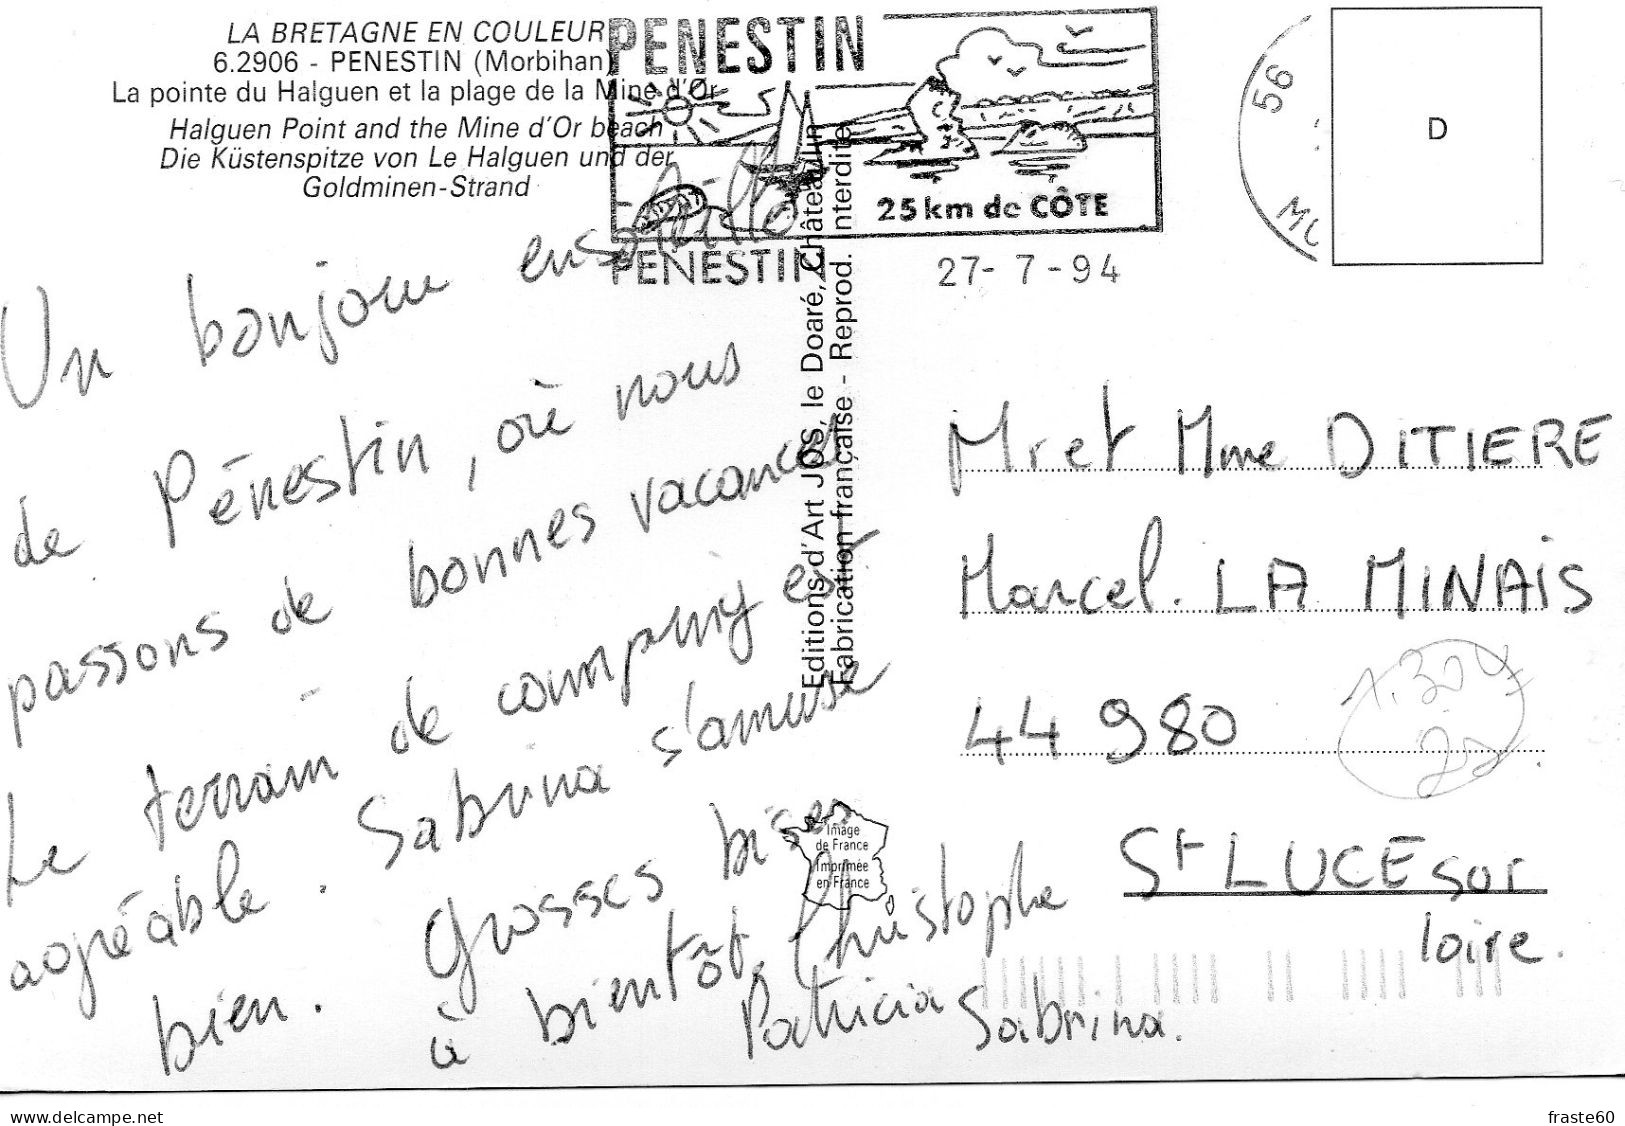 LA BRETAGNE EN COULEUR
6.2906 - PENESTIN (Morbihan)
La pointe du Halguen et la plage de la Mine d'Or
Halguen Point and the Mine d'Or beach
Die Küstenspitze von Le Halguen und der
Goldminen-Strand
PENESTIN
25 km de CÔTE
PENESTIN
27- 7 - 94
56
D
Un bonjour ensoleillé
de Pénestin, où nous
passons de bonnes vacances
Le terrain de camping est
agréable. Sabrina s'amuse
bien. Grosses bises
à bientôt. Christophe
Patricia Sabrina.
Editions d'Art JOS, le Doaré, Châteaulin
Fabrication française - Reprod. interdite
Image
de France
Imprimée
en France
Mr et Mme DITIERE
Marcel. LA MINAIS
44 980
St LUCE sur
loire.
delcampe.net
fraste60